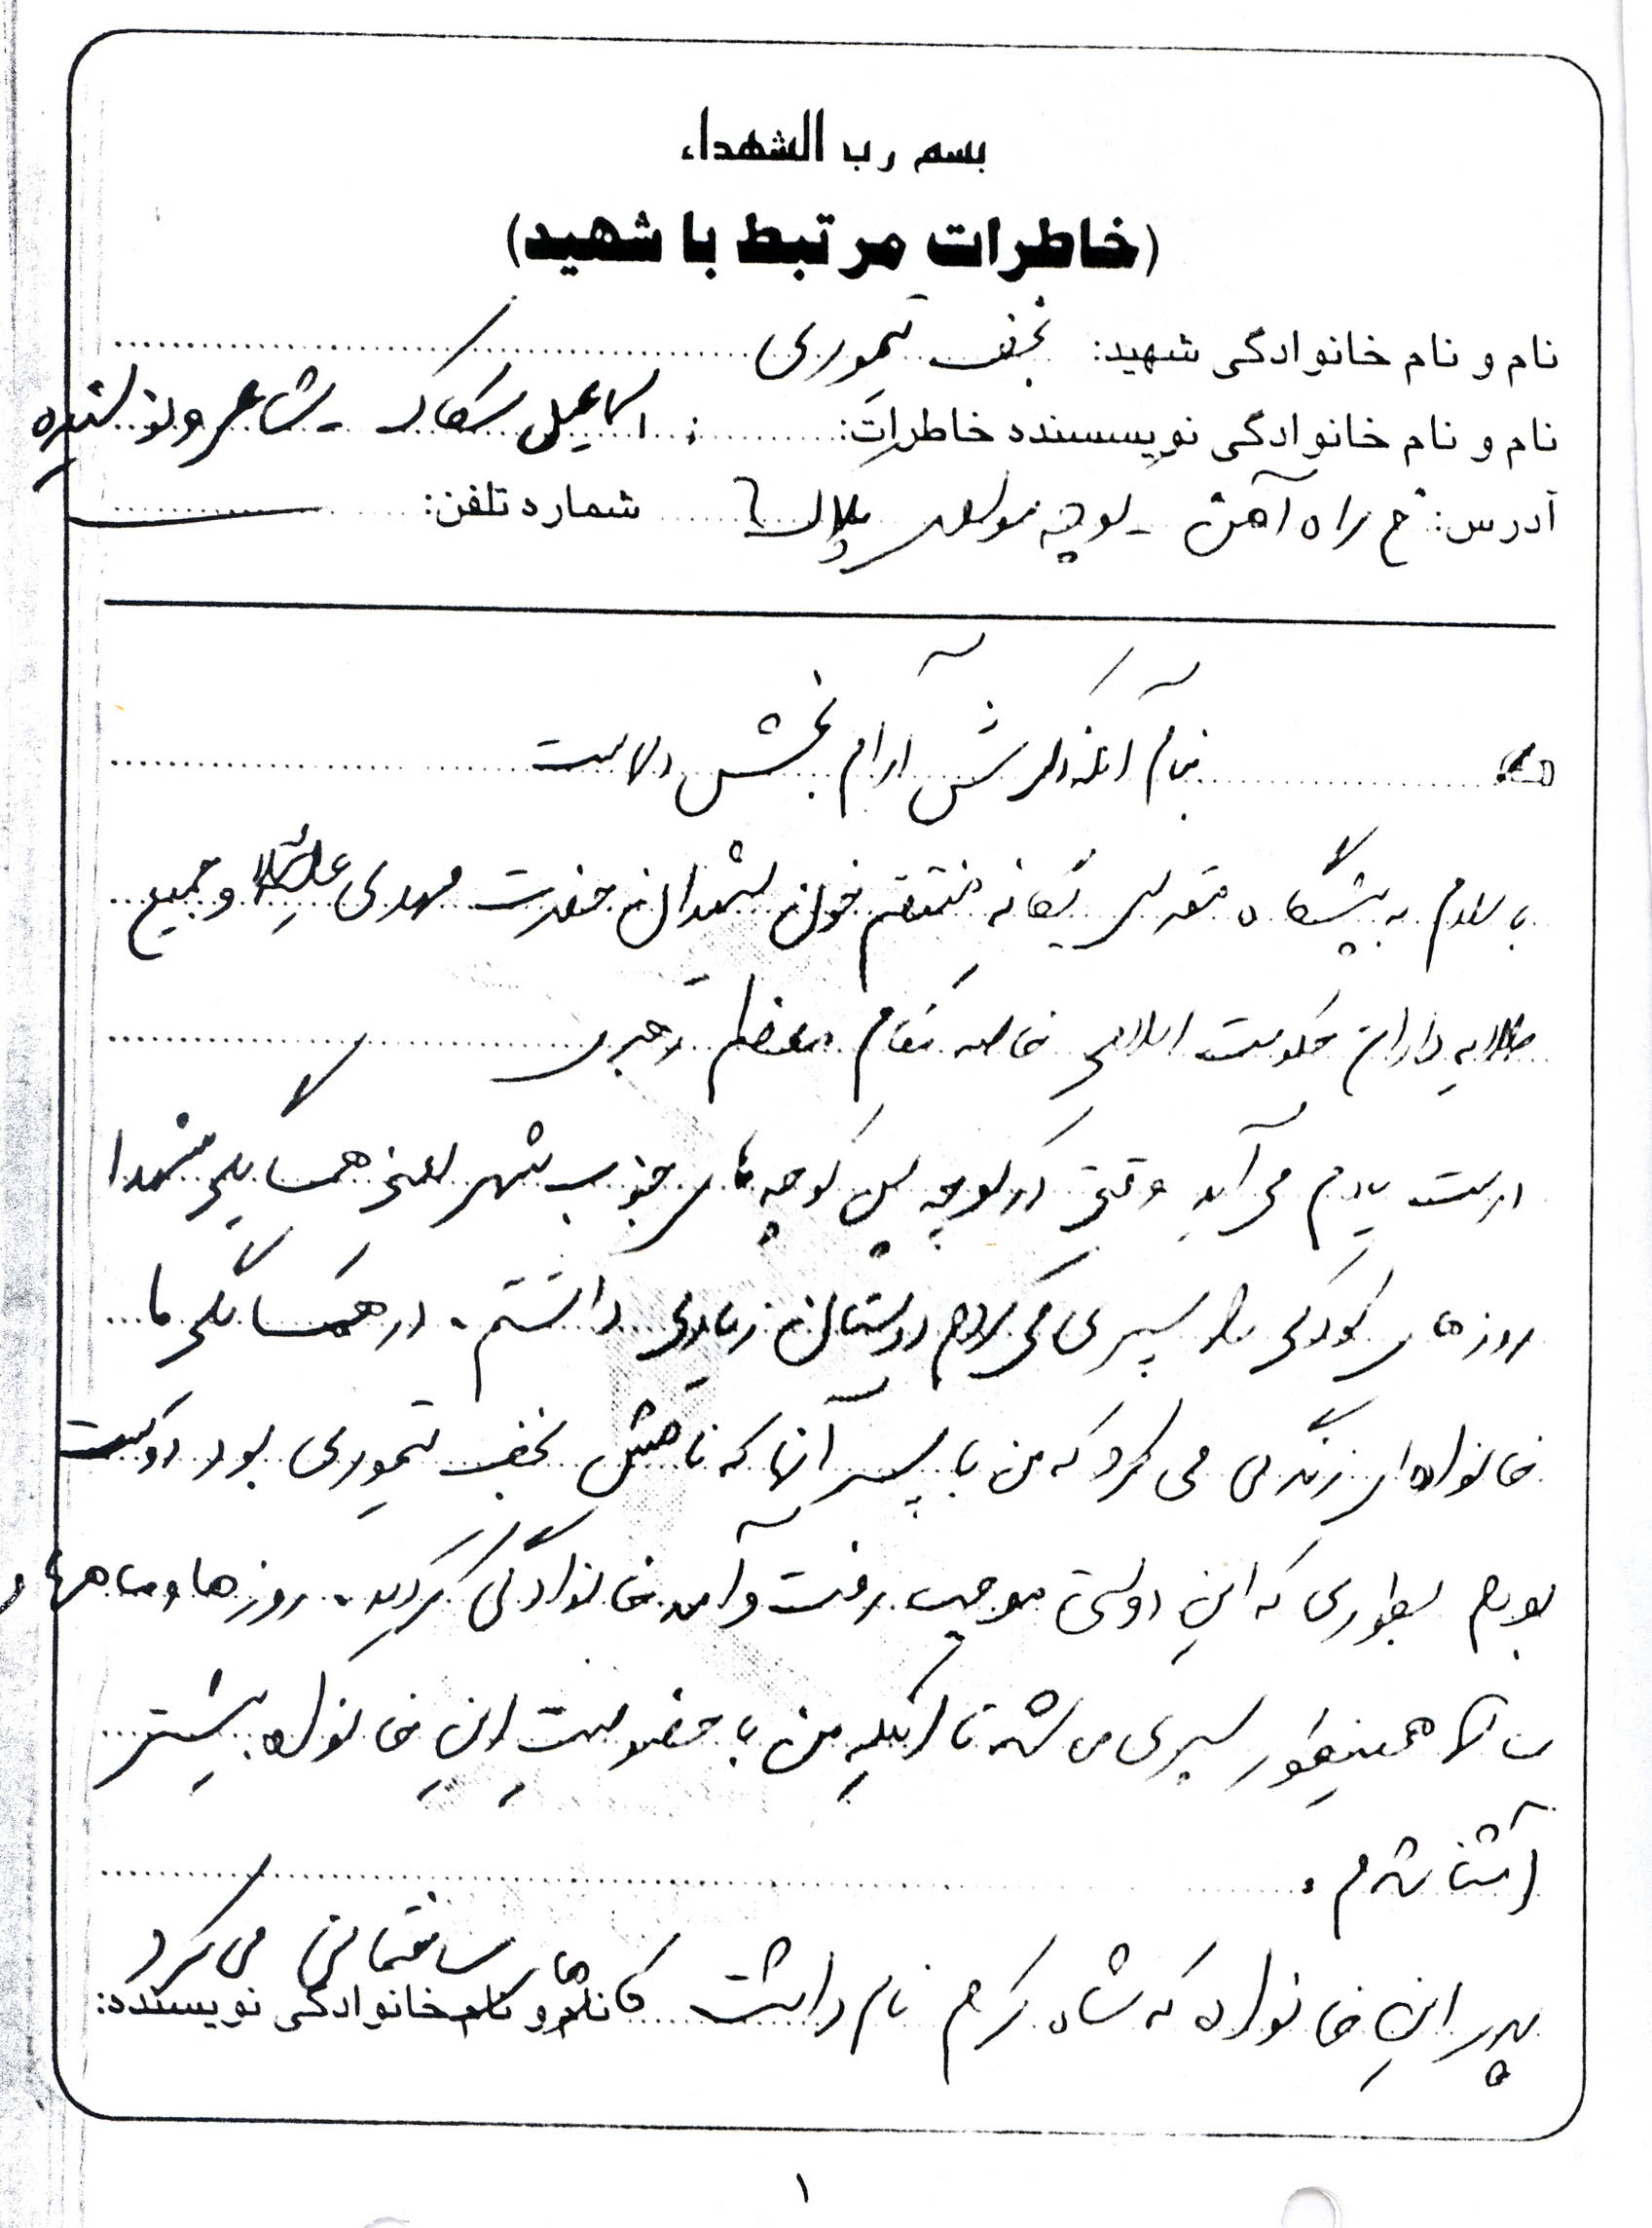 بسم رب الشهداء
(خاطرات مرتبط با شهید)
نام و نام خانوادگی شهید: نجف تیموری
نام و نام خانوادگی نویسنده خاطرات: اسماعیل سکاک - شاعر و نویسنده
آدرس: خ راه آهن - کوچه پلاک ۶ شماره تلفن:
بنام آنکه ذکرش آرام بخش دلهاست
با سلام به پیشگاه مقدس یگانه منتقم خون شهدان حضرت مهدی علیه السلام و جمیع
طلایه داران حکومت اسلامی خاصه مقام معظم رهبری
درست یادم می آید وقتی در کوچه پس کوچه های جنوب شهر یعنی همسایگی شهدا
روزهای کودکی را سپری می کردم دوستان زیادی داشتم. در همسایگی ما
خانواده ای زندگی می کرد که من با پسر آنها که نامش نجف تیموری بود دوست
بودم بطوری که این دوستی موجب رفت و آمد خانوادگی گردید. روزها و ماهها و
سالها همینطور سپری می شد تا اینکه من با خصوصیت این خانواده بیشتر
آشنا شدم.
پدر این خانواده که شاه کرم نام داشت کانالهای ساختمانی می کرد
نام و نام خانوادگی نویسنده:
۱